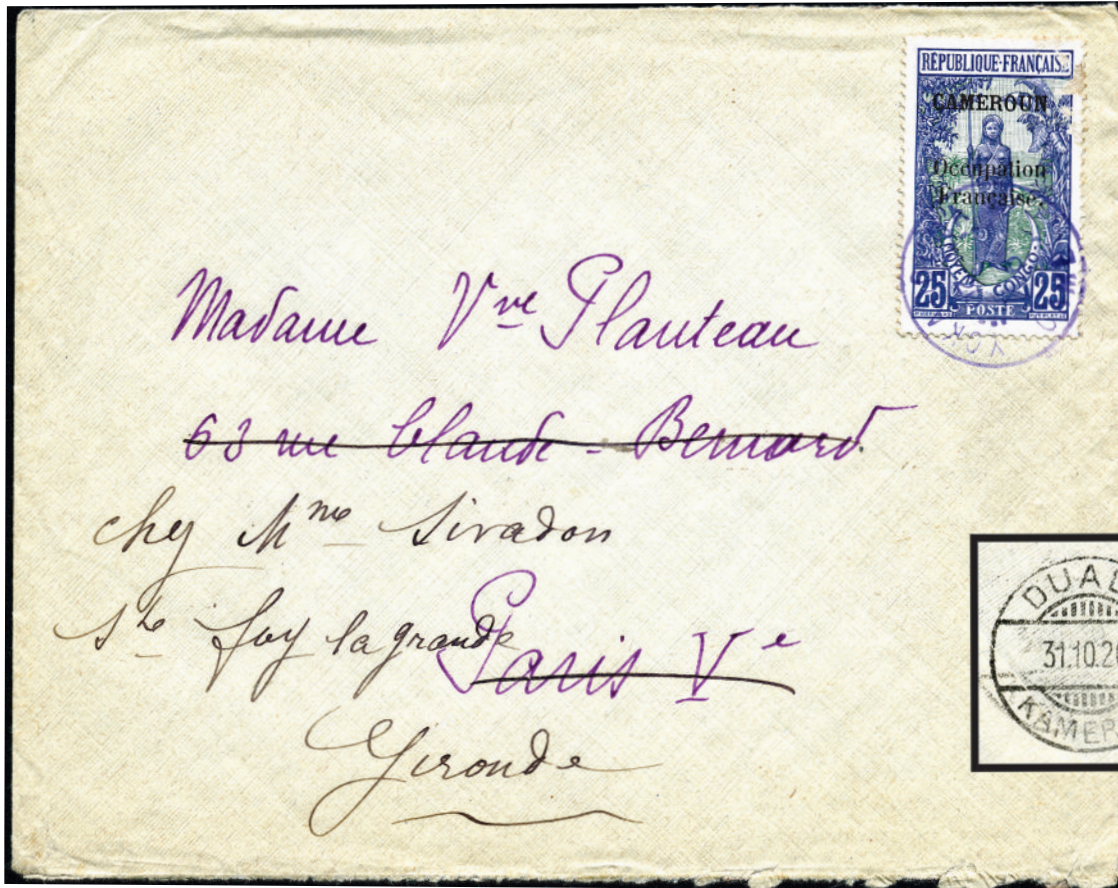 RÉPUBLIQUE·FRANÇAISE
CAMEROUN
Occupation
Française.
MOYEN CONGO
25 POSTE 25
Madame Vve Planteau
63 rue Claude-Bernard
chez Mme Sivadon
Ste foy la grande
Paris Ve
Gironde
DUAL
31.10.20
KAMER